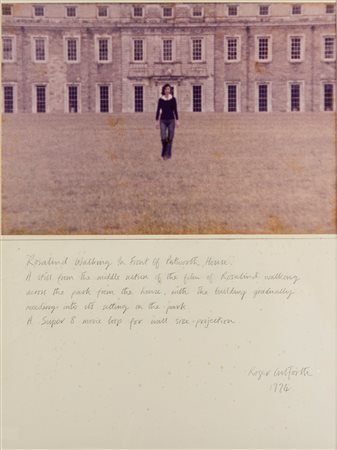 Rosalind Walking In Front Of Petworth House.
A still from the middle section of the film of Rosalind walking
across the park from the house, with the building gradually
receding into its setting in the park.
A Super 8 movie loop for wall size projection
Roger Cutforth
1974